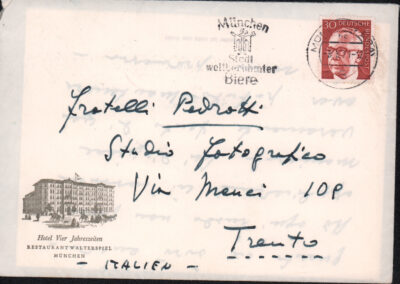 München
Stadt
weltberühmter
Biere
30 DEUTSCHE
MÜN
Fratelli Pedrotti
Studio Fotografico
Via Manci 109
Trento
- ITALIEN -
Hotel Vier Jahreszeiten
RESTAURANT WALTERSPIEL
MÜNCHEN